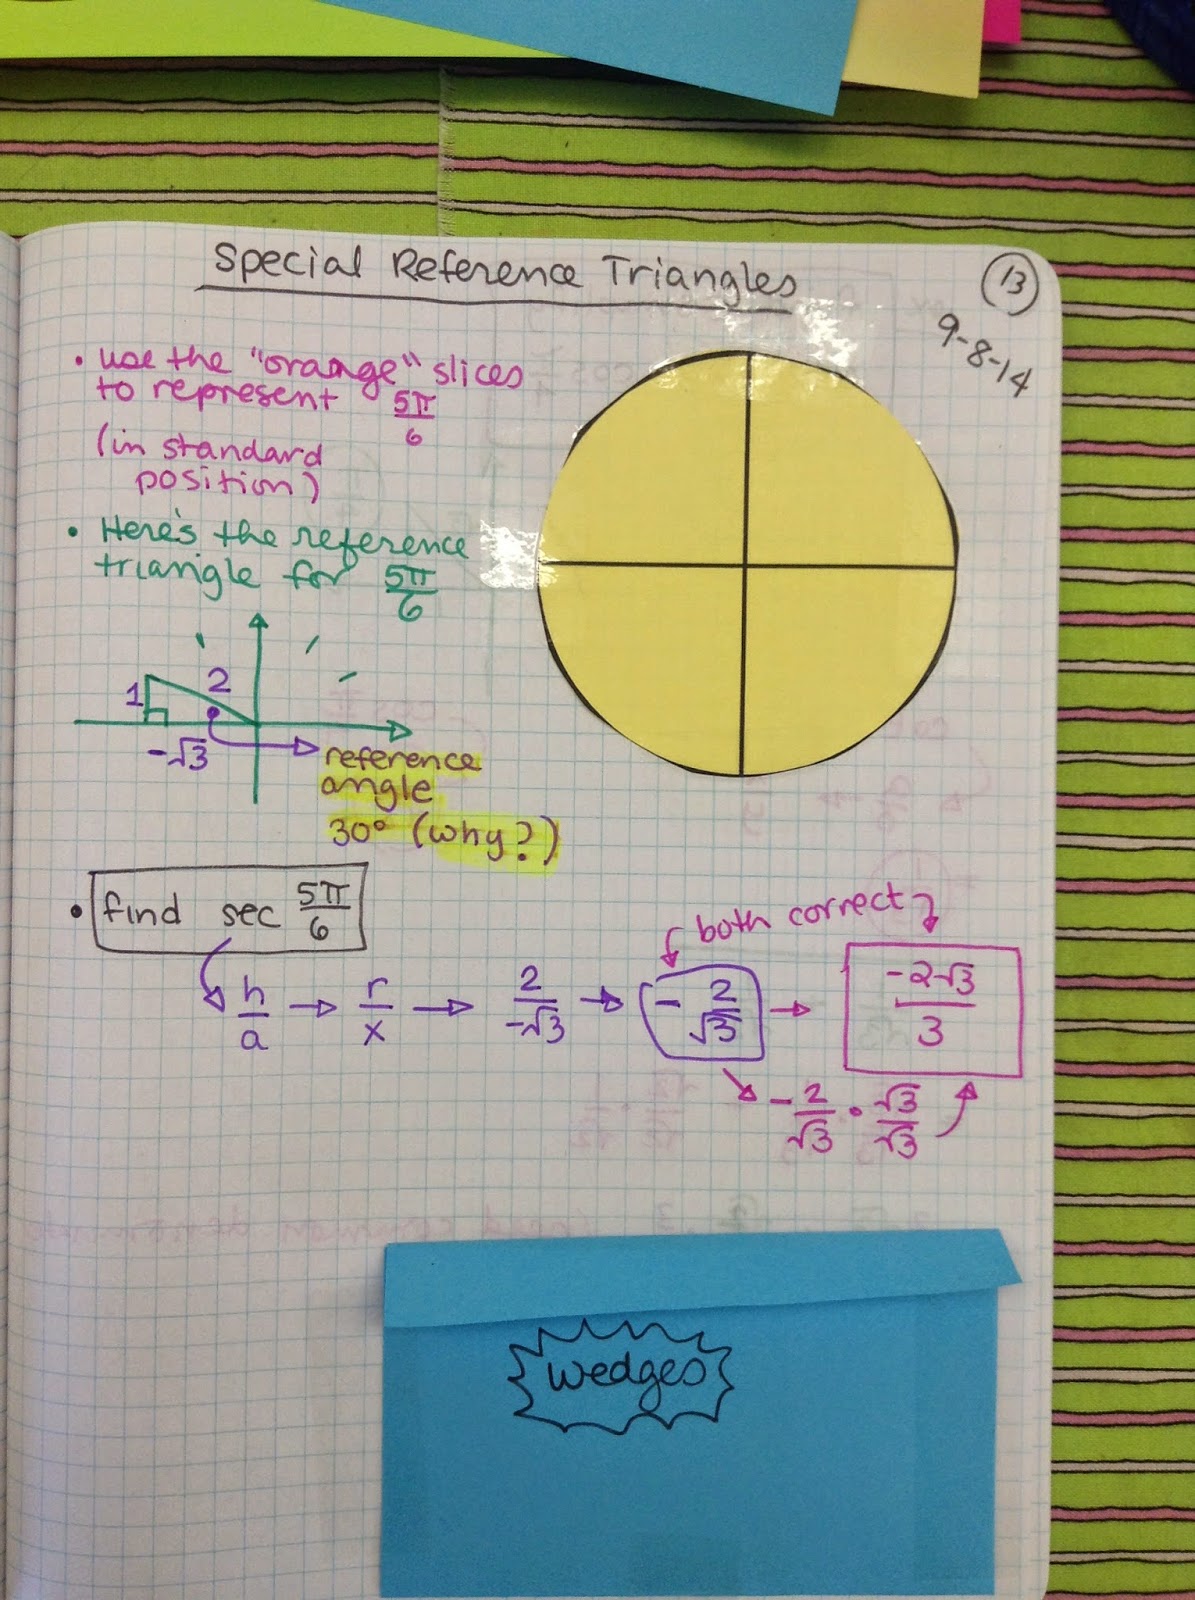 Special Reference Triangles
13
9-8-14
• use the "orange" slices
to represent 5π/6
(in standard
position)
• Here's the reference
triangle for 5π/6
1
2
-√3
reference
angle
30° (why?)
• find sec 5π/6
both correct
h/a → r/x → 2/-√3 → -2/√3 → -2√3/3
-2/√3 • √3/√3
wedges